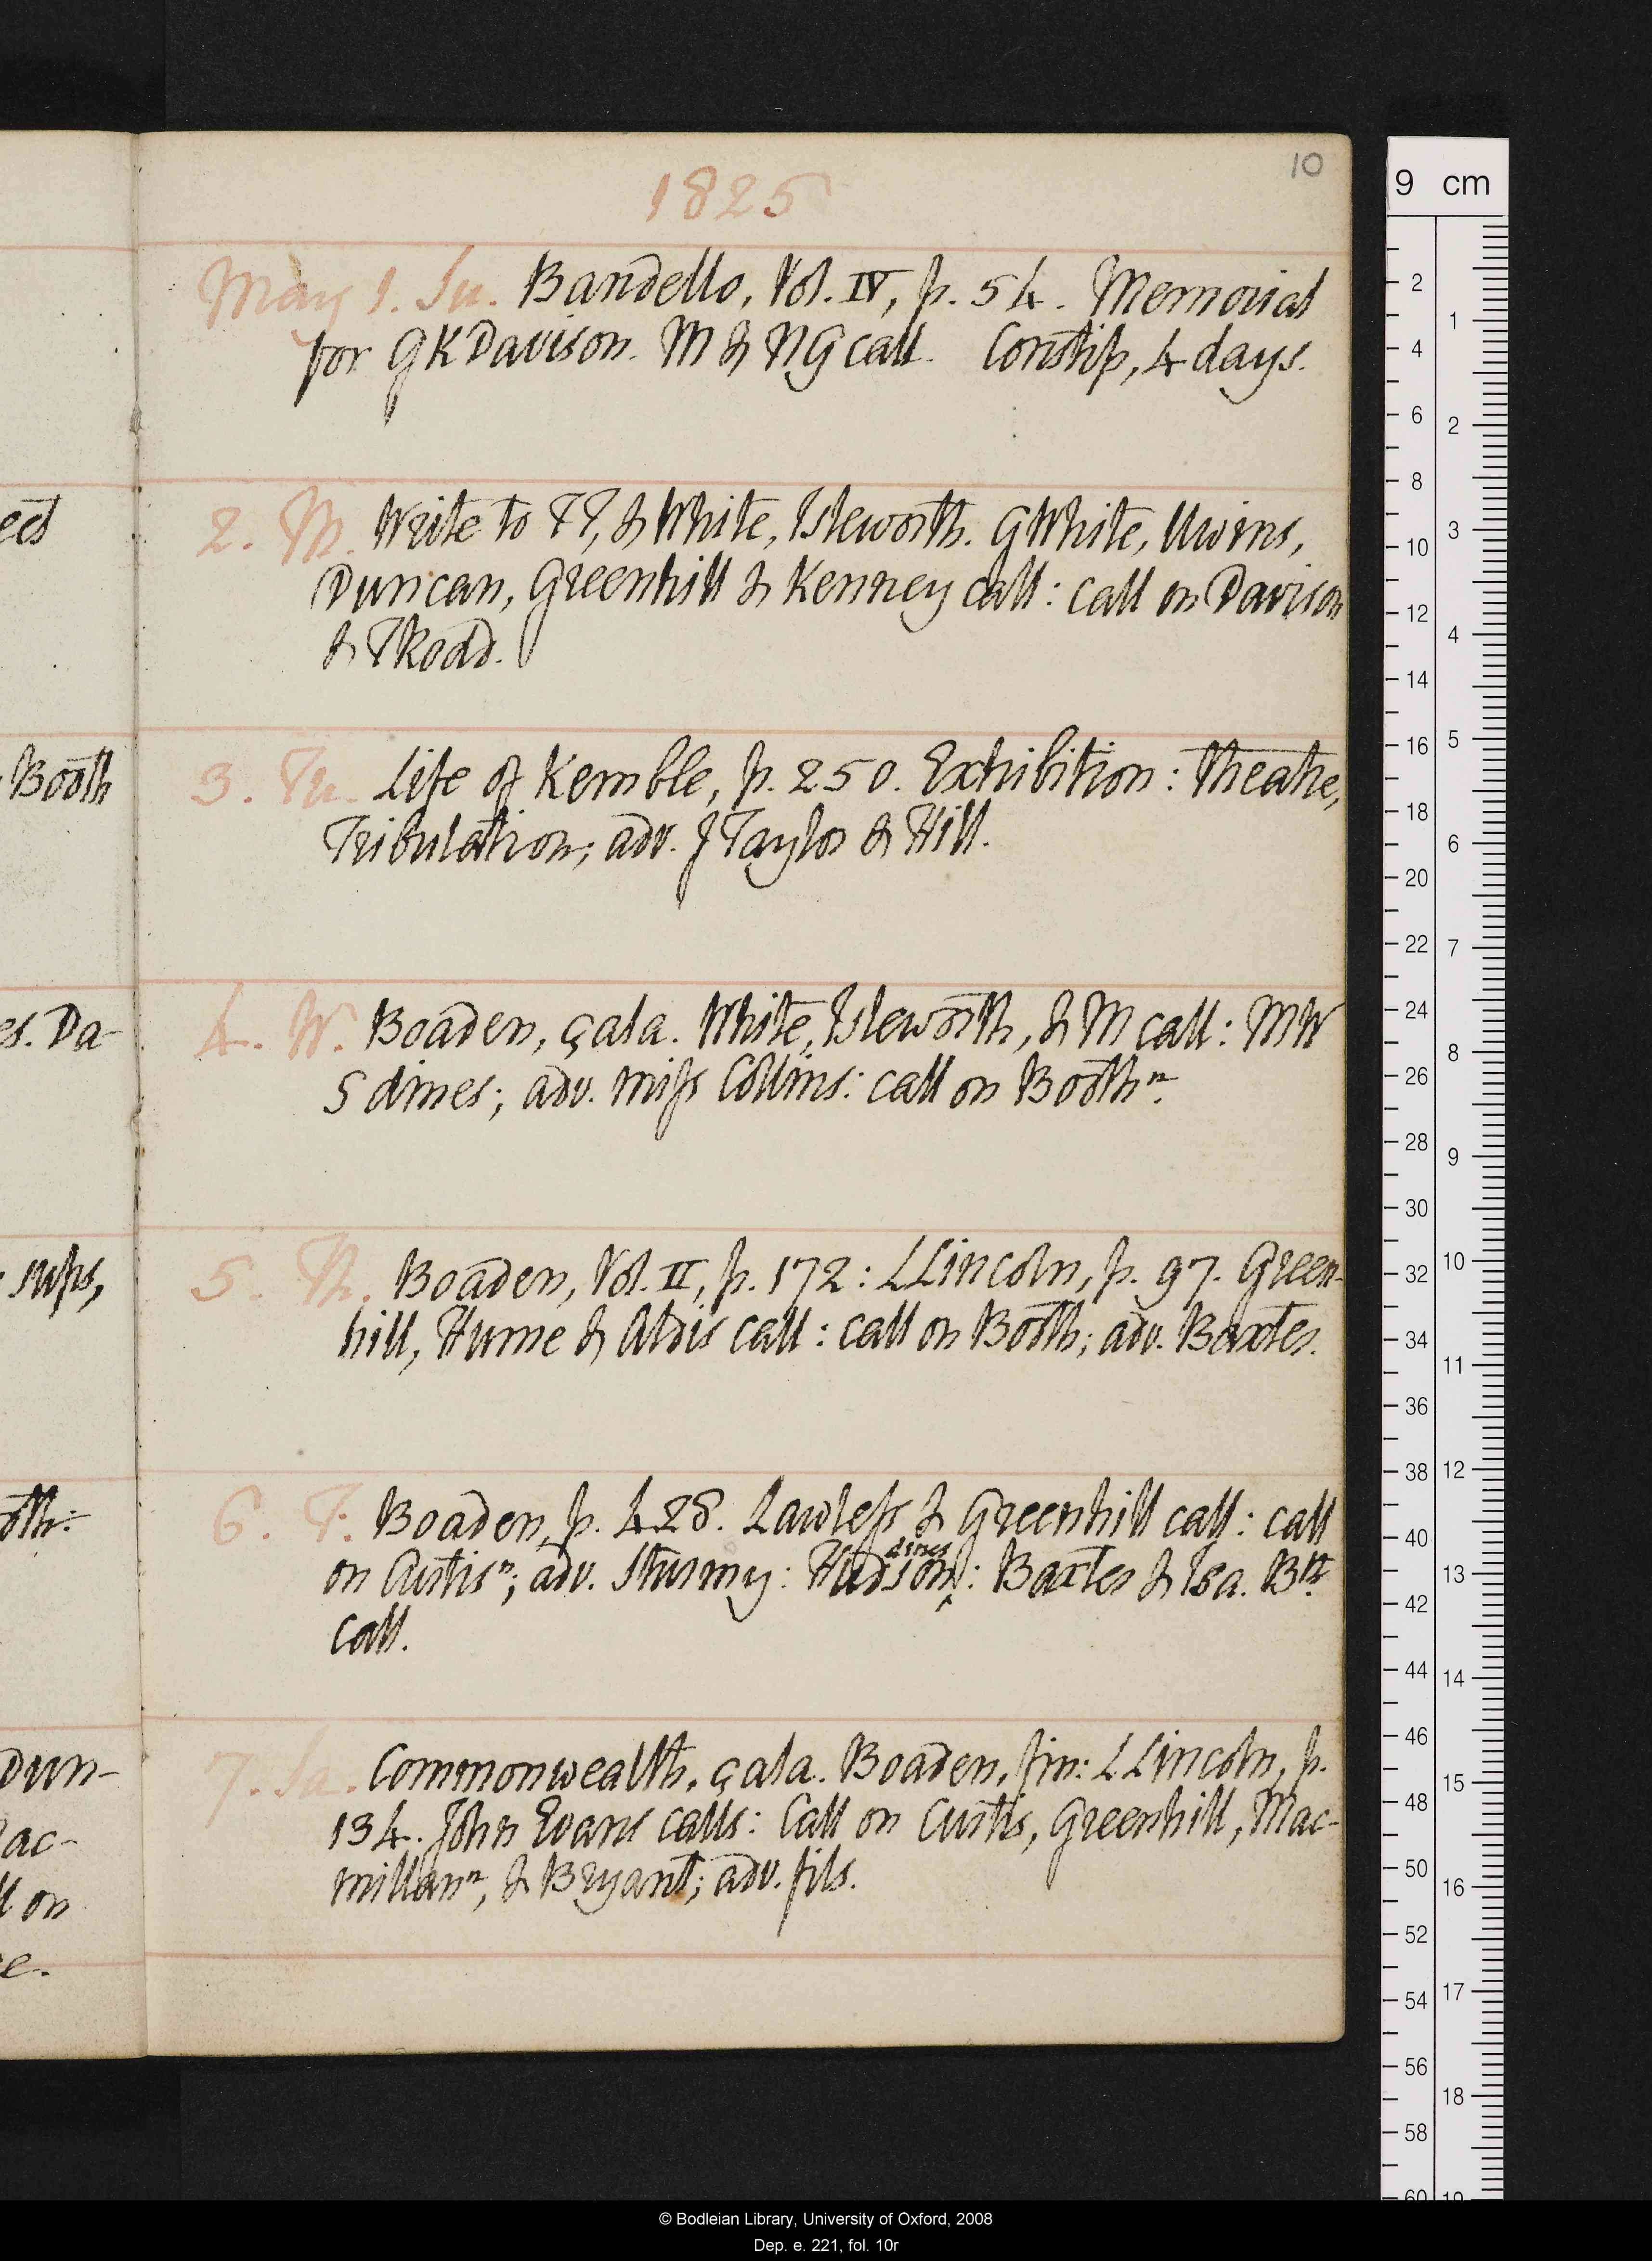 10
1825
May 1. Su. Bandello, Vol. IV, p. 54. Memorial
for GKDavison. M & NG call. Constip, 4 days.
2. M. Write to TT, & White, Isleworth. GWhite, Uwins,
Duncan, Greenhill & Kenney call: call on Davison
& TRodd.
3. Tu. Life of Kemble, p. 250. Exhibition: Theatre,
Tribulation; adv. JTaylor & Hill.
4. W. Boaden, çala. White, Isleworth, & M call: MW
S dines; adv. miss Collins: call on Boothⁿ.
5. Th. Boaden, Vol. II, p. 172: LLincoln, p. 97. Green-
hill, Hume & Aldis call: call on Booth; adv. Baxter.
6. F. Boaden, p. 428. Lawless & Greenhill call: call
on Curtisⁿ; adv. Sturmy: Hudson dines: Baxter & Isa. Bʳ.
call.
7. Sa. Commonwealth, çala. Boaden, fin: LLincoln, p.
134. John Evans calls: Call on Curtis, Greenhill, Mac-
millanⁿ, & Bryant; adv. fils.
ect
Booth
es. Da-
sups,
oth:
Dun-
ac-
ll on
e.
9 cm
2
4
6
8
10
12
14
16
18
20
22
24
26
28
30
32
34
36
38
40
42
44
46
48
50
52
54
56
58
60
1
2
3
4
5
6
7
8
9
10
11
12
13
14
15
16
17
18
19
© Bodleian Library, University of Oxford, 2008
Dep. e. 221, fol. 10r